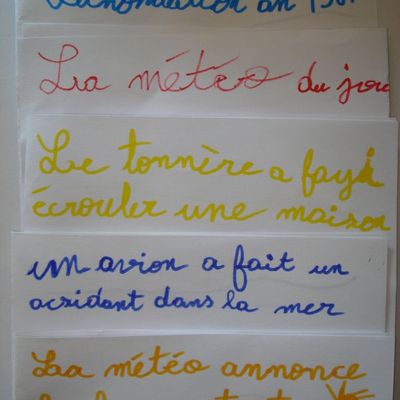 La météo du jou
Le tonnère a fayi
écrouler une maison
un avion a fait un
acsidant dans la mer
La météo annonce